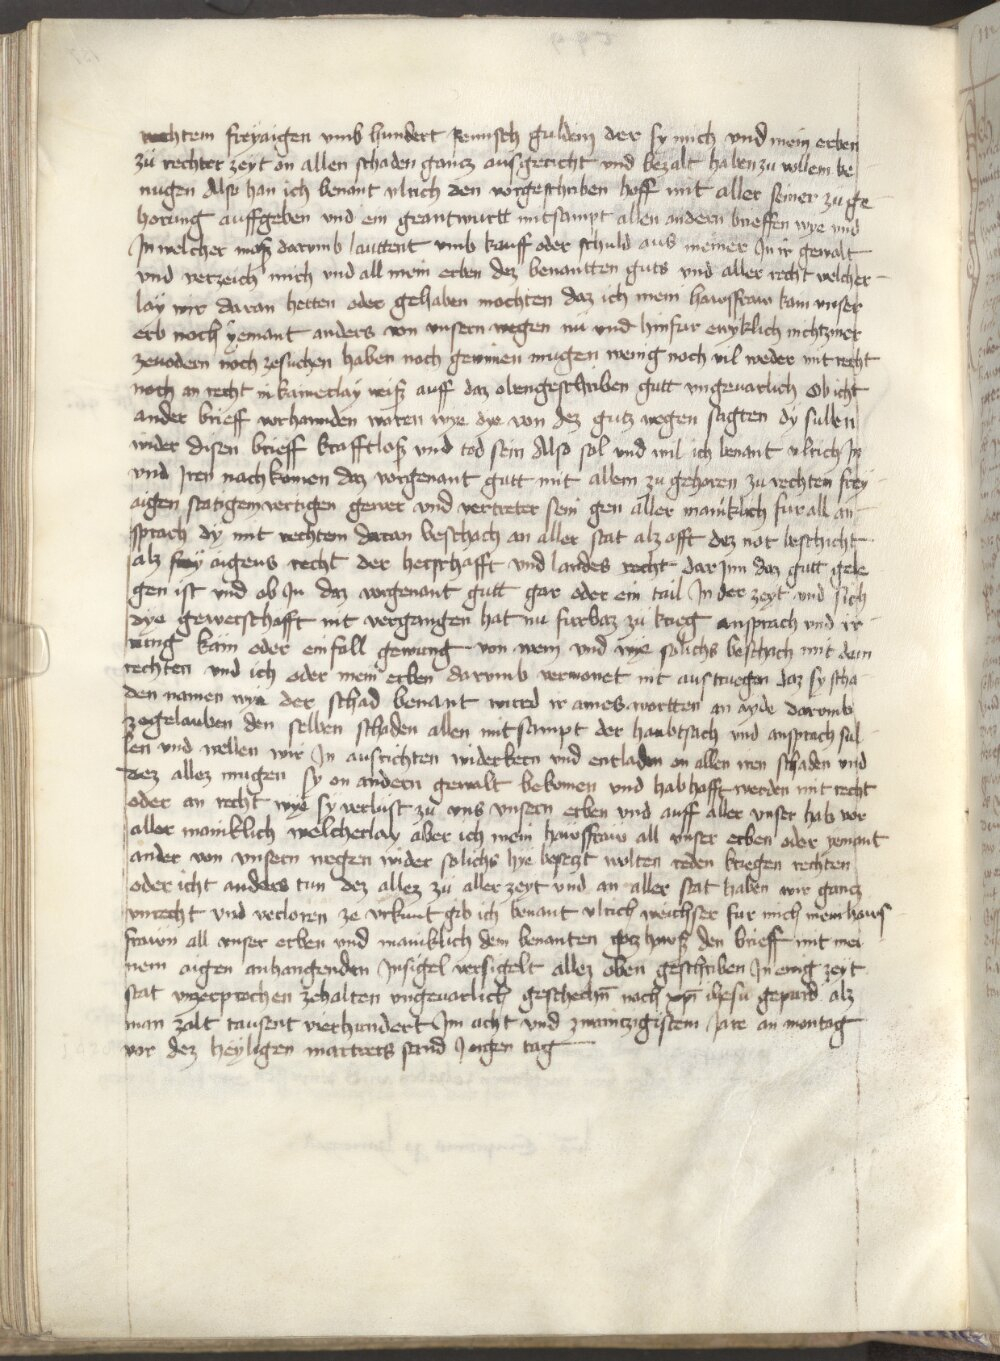 rechtem freyaigen vmb hundert Reinisch guldein der sy mich vnd mein erben
zu rechter zeyt on allen schaden gancz ausgericht vnd bezalt haben zu vollem be
nugen Also han ich benant vlrich den vorgeschriben hoff mit aller seiner zu ge
horung auffgeben vnd ein geantwurtt mitsampt allen andern brieffen wye vnd
In welcher mosz darumb lauttent vmb kauff oder schuld aus meiner In ir gewalt
vnd verzeich mich vnd all mein erben dez benantten guts vnd aller recht welcher
lay wir daran hetten oder gehaben mochten daz ich mein hawsfraw kain vnser
erb noch yemant anders von vnsern wegen nu vnd hinfur ewyklich nichtzmer
zeuodern noch zesuchen haben noch gewinen mugen wenig noch vil weder mit recht
noch an recht in kainerlay weisz auff daz obengeschriben gutt vngeuarlich Ob icht
ander brieff vorhannden waren wye dye von dez gutz wegen sagten dy sullen
wider disen brieff krafftlosz vnd tod sein Also sol vnd wil ich benant vlrich In
vnd Iren nachkomen daz vorgenant gutt mit allem zu gehoren zu rechten frey
aigen statigem vertigen gewer vnd vertreter sein gen aller maniklich fur all an
sprach dy mit rechtem daran beschach an aller stat alz offt dez not beschicht
alz frey aigens recht der herschafft vnd landes recht dar Inn daz gutt gele
gen ist vnd ob In daz vorgenant gutt gar oder ein tail In der zeyt vnd sich
dye gewerschafft nit vergangen hat nu furbaz zu krieg ansprach vnd ir
rung kain oder einfall gewung von wem vnd wye solichs beschach mit dem
rechten vnd ich oder mein erben darumb vermonet nit austruegen daz sy scha
den namen wye der schad benant wurd ir aines wortten an ayde darumb
zegelauben den selben schaden allen mitsampt der haubtsach vnd ansprach sul
len vnd wellen wir In ausrichten widerkern vnd entladen on allen iren schaden vnd
dez allez mugen sy on andern gewalt bekomen vnd habhafft werden mit recht
oder an recht wye sy verlust zu vns vnsern erben vnd auff aller vnser hab vor
aller maniklich welcherlay aber ich mein hawsfraw all vnser erben oder yemant
ander von vnsern wegen wider solichs hye beseczt wolten reden kriegen rechten
oder icht anders tun dez allez zu aller zeyt vnd an aller stat haben wir gancz
vnrecht vnd verloren ze vrkunt gib ich benant vlrich weichser fur mich mein haws
frawn all vnser erben vnd maniklich dem benanten gotz hawsz den brieff mit mei
nem aigen anhangenden Insigel versigelt allez oben geschriben In ewig zeyt
stat vnzerprochen zehalten vngeuarlich geschechn nach xpi ihesu gepurd alz
man zalt tausent vierhundert Im acht vnd zwainczigistem Jare an montag
vor dez heyligen martrers sand Jorgen tag